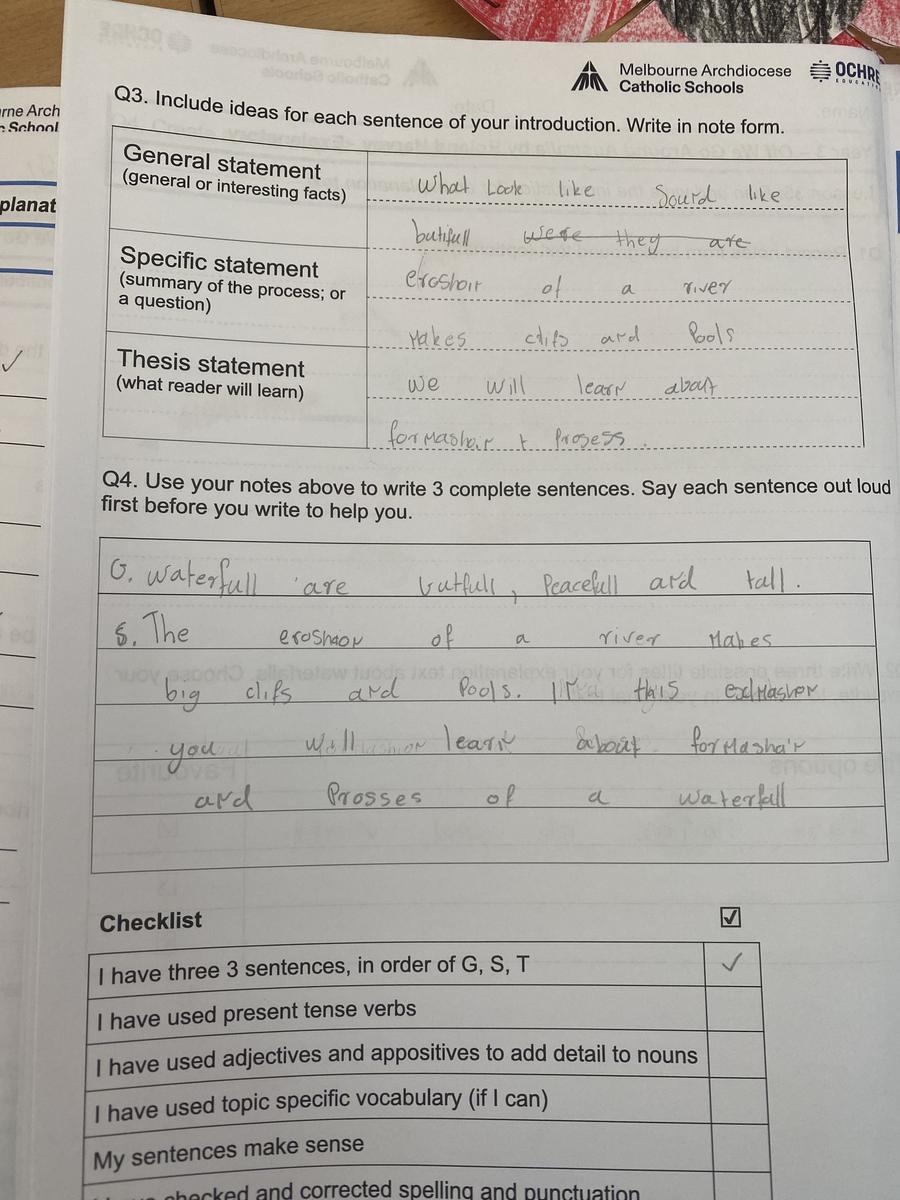 Melbourne Archdiocese
Catholic Schools
OCHRE
EDUCATION
rne Arch
School
planat
Q3. Include ideas for each sentence of your introduction. Write in note form.
General statement
(general or interesting facts)
What Look like Sourd like
butifull were they are
Specific statement
(summary of the process; or
a question)
eroshoir of a river
Makes clifs ard Pools
Thesis statement
(what reader will learn)
we will learn about
formashoir + Prosess.
Q4. Use your notes above to write 3 complete sentences. Say each sentence out loud
first before you write to help you.
G. Waterfull are butfull, Peacefull ard tall.
S. The eroshaon of a river Makes
big clifs ard Pools. this
you will learn about formasha'r
ard Prosses of a waterfall
Checklist
I have three 3 sentences, in order of G, S, T
I have used present tense verbs
I have used adjectives and appositives to add detail to nouns
I have used topic specific vocabulary (if I can)
My sentences make sense
checked and corrected spelling and punctuation